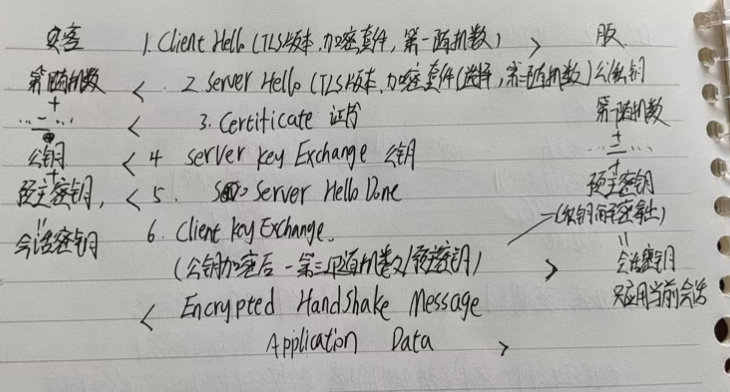 客 1. Client Hello (TLS版本,加密套件,第一随机数) > 服
第一随机数 < 2 Server Hello (TLS版本,加密套件(选择,第二随机数) 公 私钥
+ 第一随机数
...二... < 3. Certificate 证书 +
公钥 < 4 Server key Exchange 公钥 ...二...
+ +
预主密钥, < 5. Server Hello Done 预主密钥
= 6. Client key Exchange. (私钥解密拿出)
会话密钥 (公钥加密后-第三随机数/预主密钥) > =
会话密钥
< Encrypted Handshake Message 只应用当前会话
Application Data >